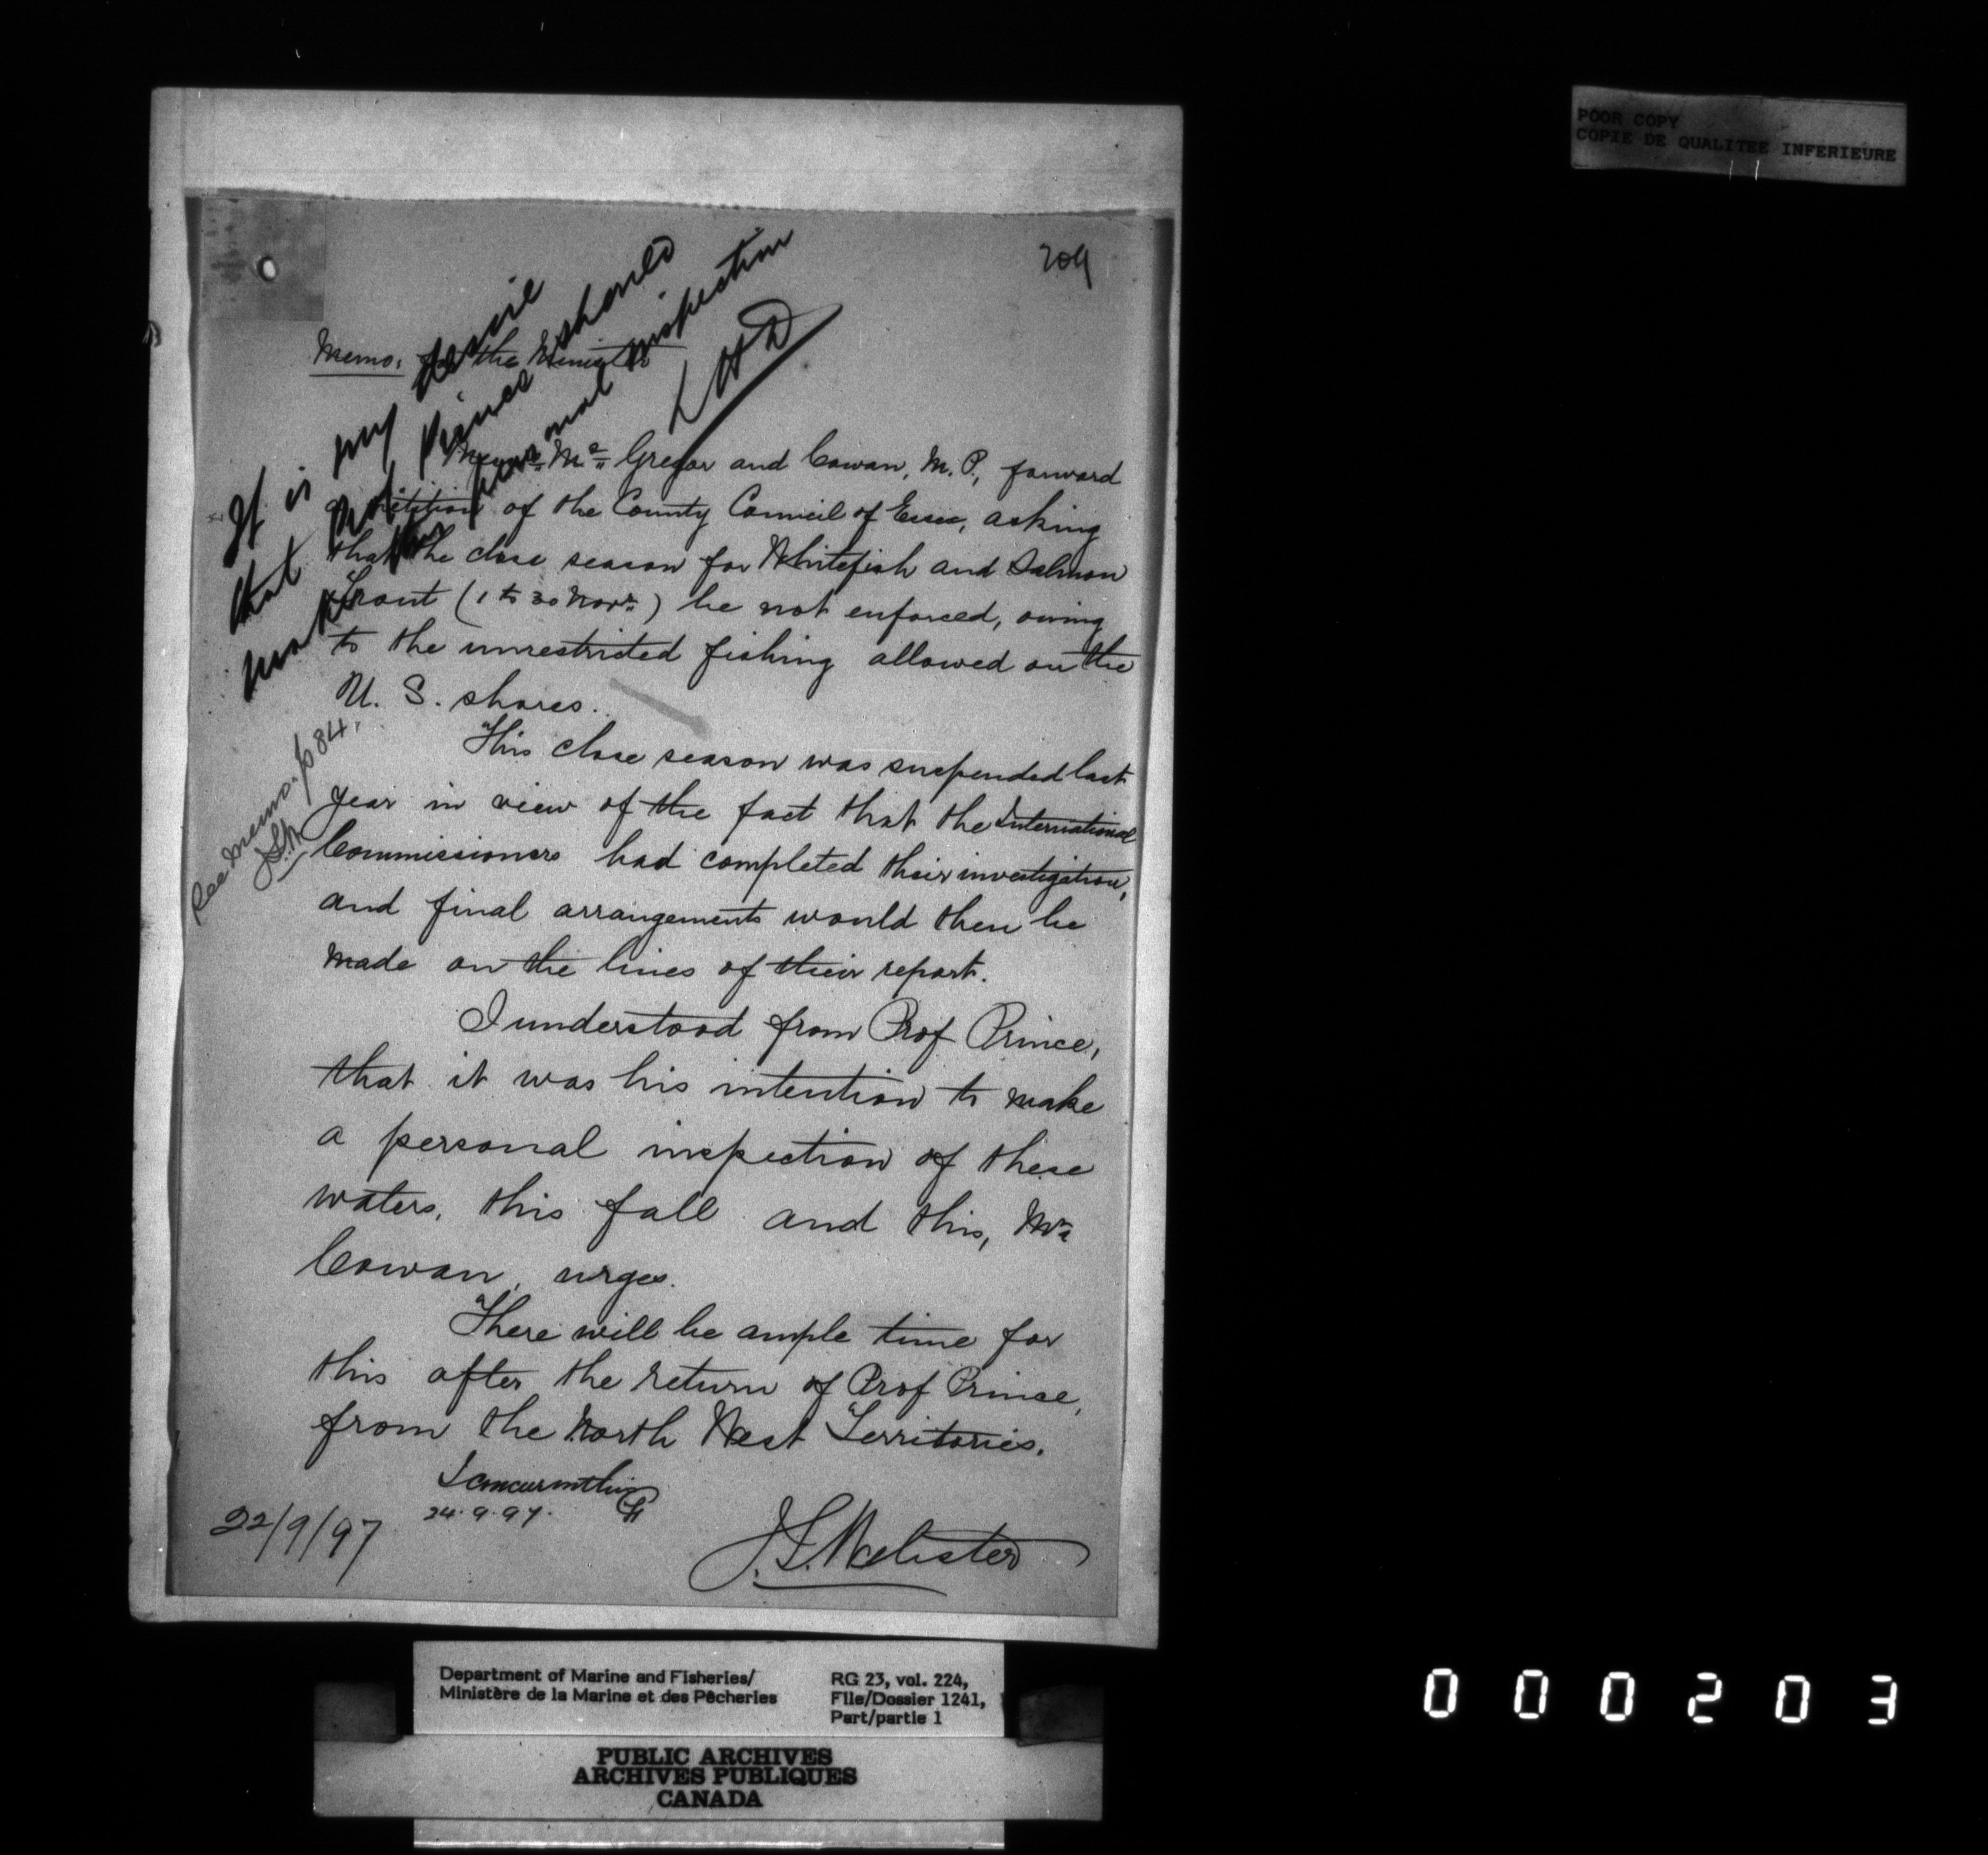 POOR COPY
COPIE DE QUALITEE INFERIEURE
204
Memo. for the Minister
It is my desire
that Prof Prince should
make this personal inspection
LHD
Messrs. Mc Gregor and Cowan, M.P., forward
a petition of the County Council of Essex, asking
that the close season for Whitefish and Salmon
Trout (1 to 30 Novr.) be not enforced, owing
to the unrestricted fishing allowed on the
U. S. shores.
See memo. p 84.
This close season was suspended last
year in view of the fact that the International
Commissioners had completed their investigation,
and final arrangements would then be
made on the lines of their report.
I understood from Prof Prince,
that it was his intention to make
a personal inspection of these
waters, this fall and this, Mr
Cowan, urges.
There will be ample time for
this after the return of Prof Prince,
from the North West Territories.
I concur in this
24.9.97.
22/9/97
Department of Marine and Fisheries/
Ministère de la Marine et des Pêcheries
RG 23, vol. 224,
File/Dossier 1241,
Part/partie 1
PUBLIC ARCHIVES
ARCHIVES PUBLIQUES
CANADA
000203